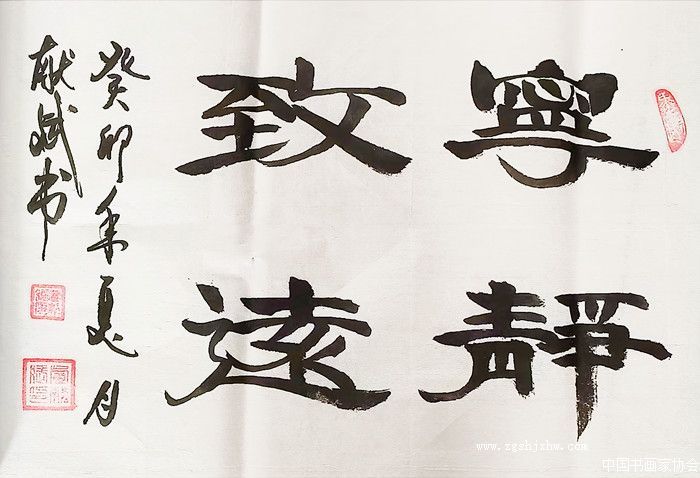 寧靜
致遠
癸卯年夏月
献斌书
www.zgshjxhw.com
中国书画家协会